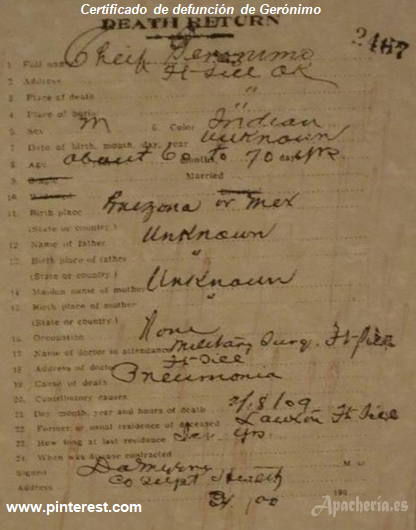 Certificado de defunción de Gerónimo
DEATH RETURN
2467
1. Full name Chief Geronimo
2. Address Ft Sill Ok
3. Place of death "
4. Place of burial "
5. Sex M 6. Color Indian
7. Date of birth, month, day, year Unknown
8. Age about 60 Months to 70 days yrs.
9. Single Married
10.
11. Birth place Arizona or Mex
(State or country.)
12. Name of father Unknown
13. Birth place of father "
(State or country.)
14. Maiden name of mother Unknown
15. Birth place of mother "
(State or country.)
16. Occupation None
17. Name of doctor in attendance Military Surg. Ft Sill
18. Address of doctor Ft Sill
19. Cause of death Pneumonia
20. Contributory causes
21. Day, month, year and hours of death 2/18/09
22. Former or usual residence of deceased Lawton Ft Sill
23. How long at last residence yrs.
24. When was disease contracted
Signed M. D.
Address Co Supt Health 190
www.pinterest.com
Apachería.es